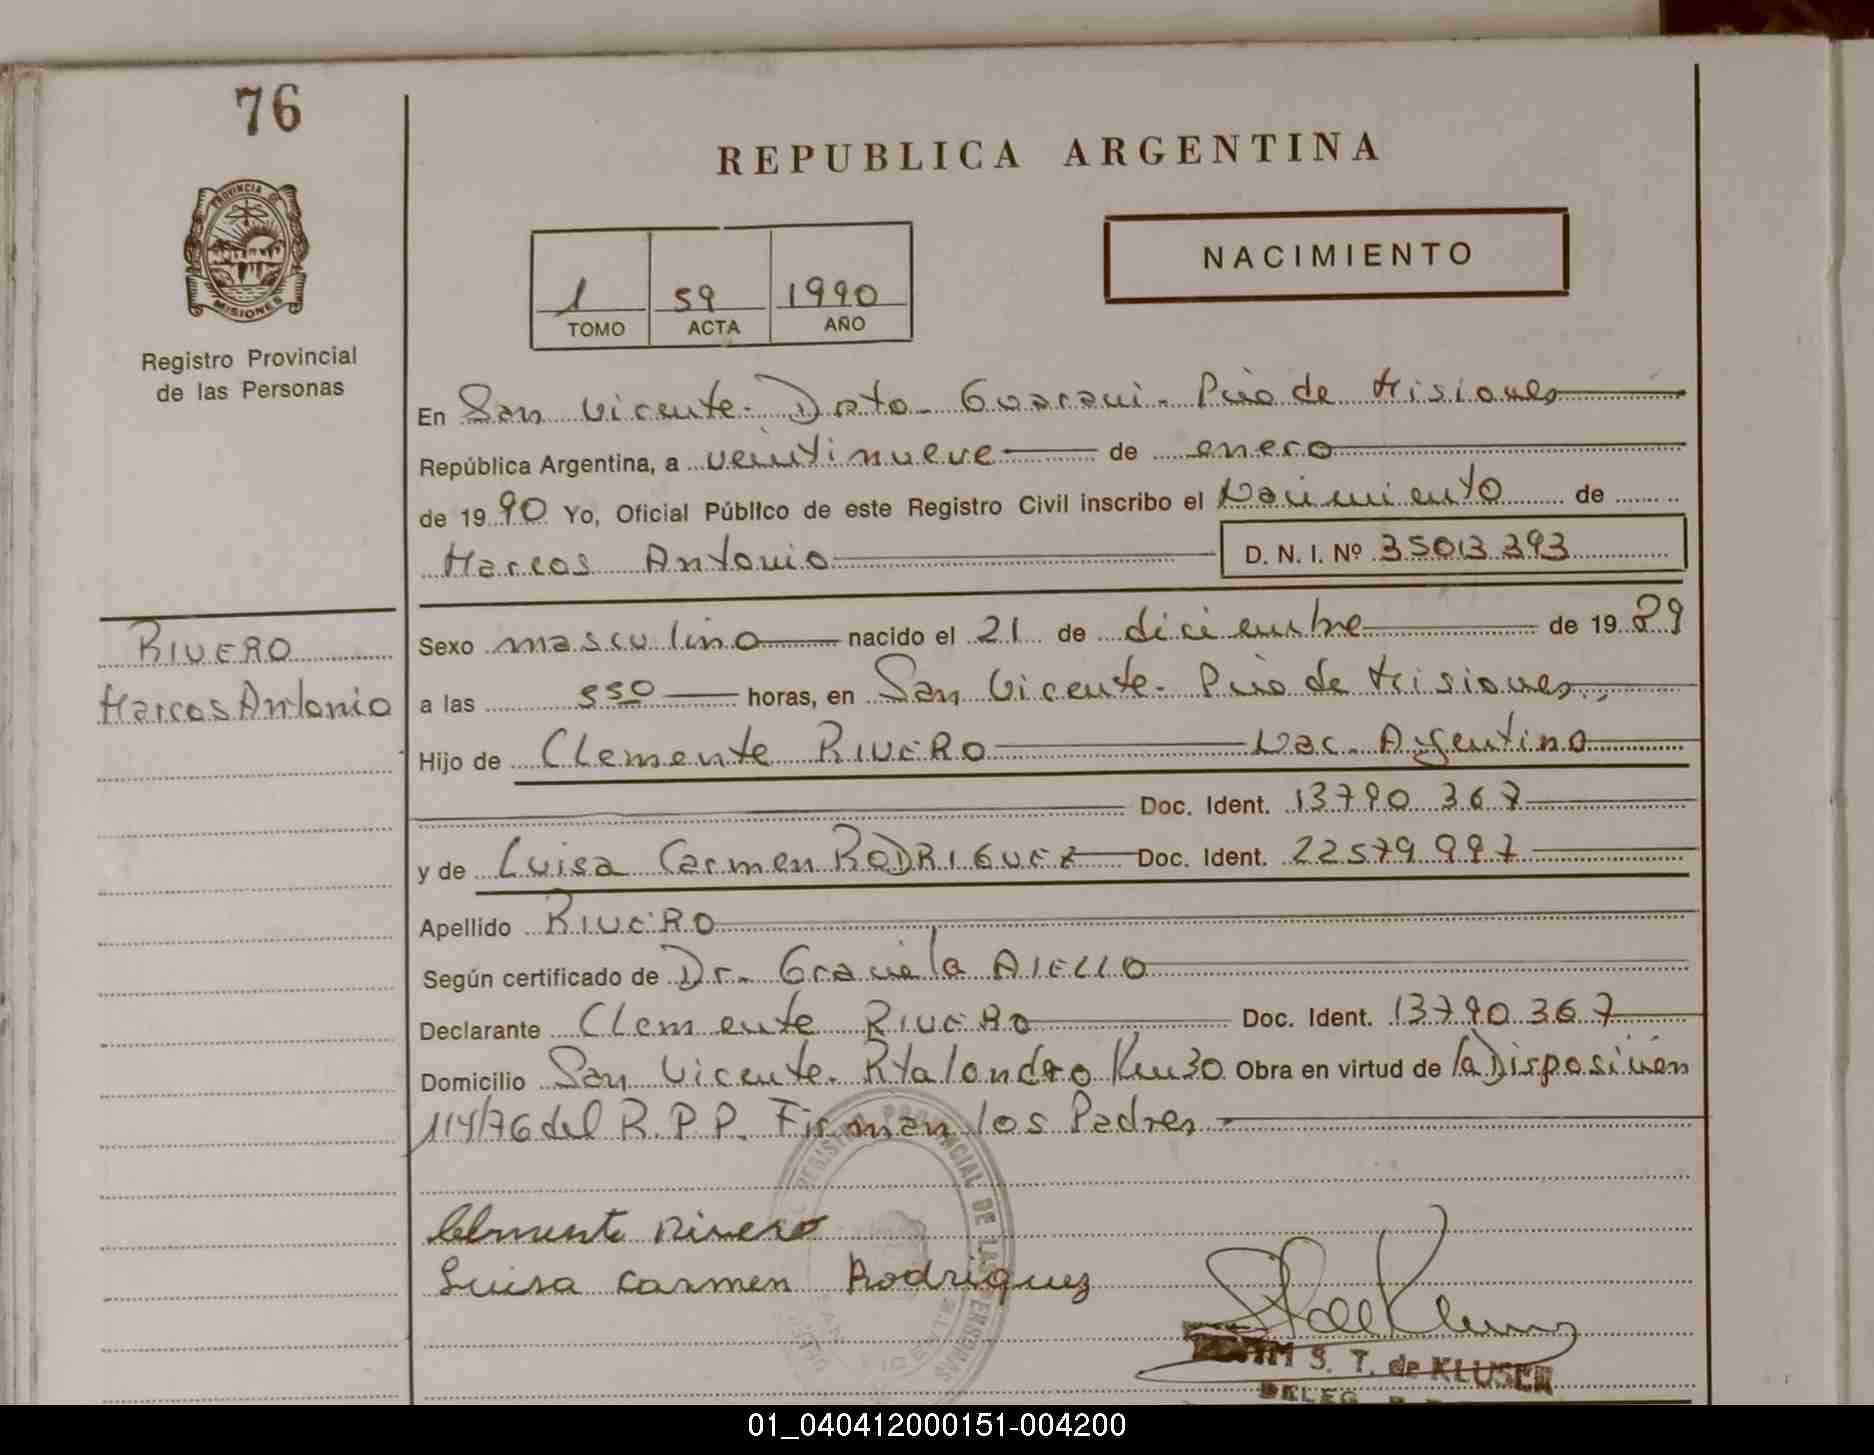 76
REPUBLICA ARGENTINA
PROVINCIA DE
MISIONES
Registro Provincial
de las Personas
NACIMIENTO
1 59 1990
TOMO ACTA AÑO
En San Vicente - Dpto. Guarani - Pcia de Misiones
República Argentina, a veintinueve de enero
de 1990 Yo, Oficial Público de este Registro Civil inscribo el Nacimiento de
Marcos Antonio D. N. I. Nº 35013393
RIVERO
Marcos Antonio
Sexo masculino nacido el 21 de diciembre de 1989
a las 550 horas, en San Vicente - Pcia de Misiones
Hijo de Clemente RIVERO Nac. Argentino
Doc. Ident. 13790 367
y de Luisa Carmen RODRIGUEZ Doc. Ident. 22579997
Apellido RIVERO
Según certificado de Dr. Graciela AIELLO
Declarante Clemente RIVERO Doc. Ident. 13790367
Domicilio San Vicente - Km 30 Obra en virtud de la Disposición
114/76 del R.P.P. Firman los Padres
REGISTRO PROVINCIAL DE LAS PERSONAS
Clmente Rivero
Luisa Carmen Rodriguez
S. T. de KLUSER
DELEG.
01_040412000151-004200